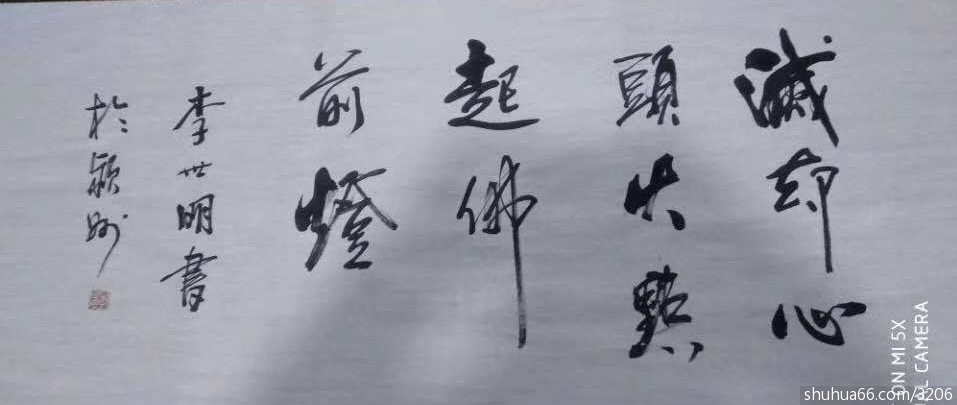 滅却心
頭火點
起佛
前燈
李世明書
於潁州
ON MI 5X
AL CAMERA
shuhua66.com/3206